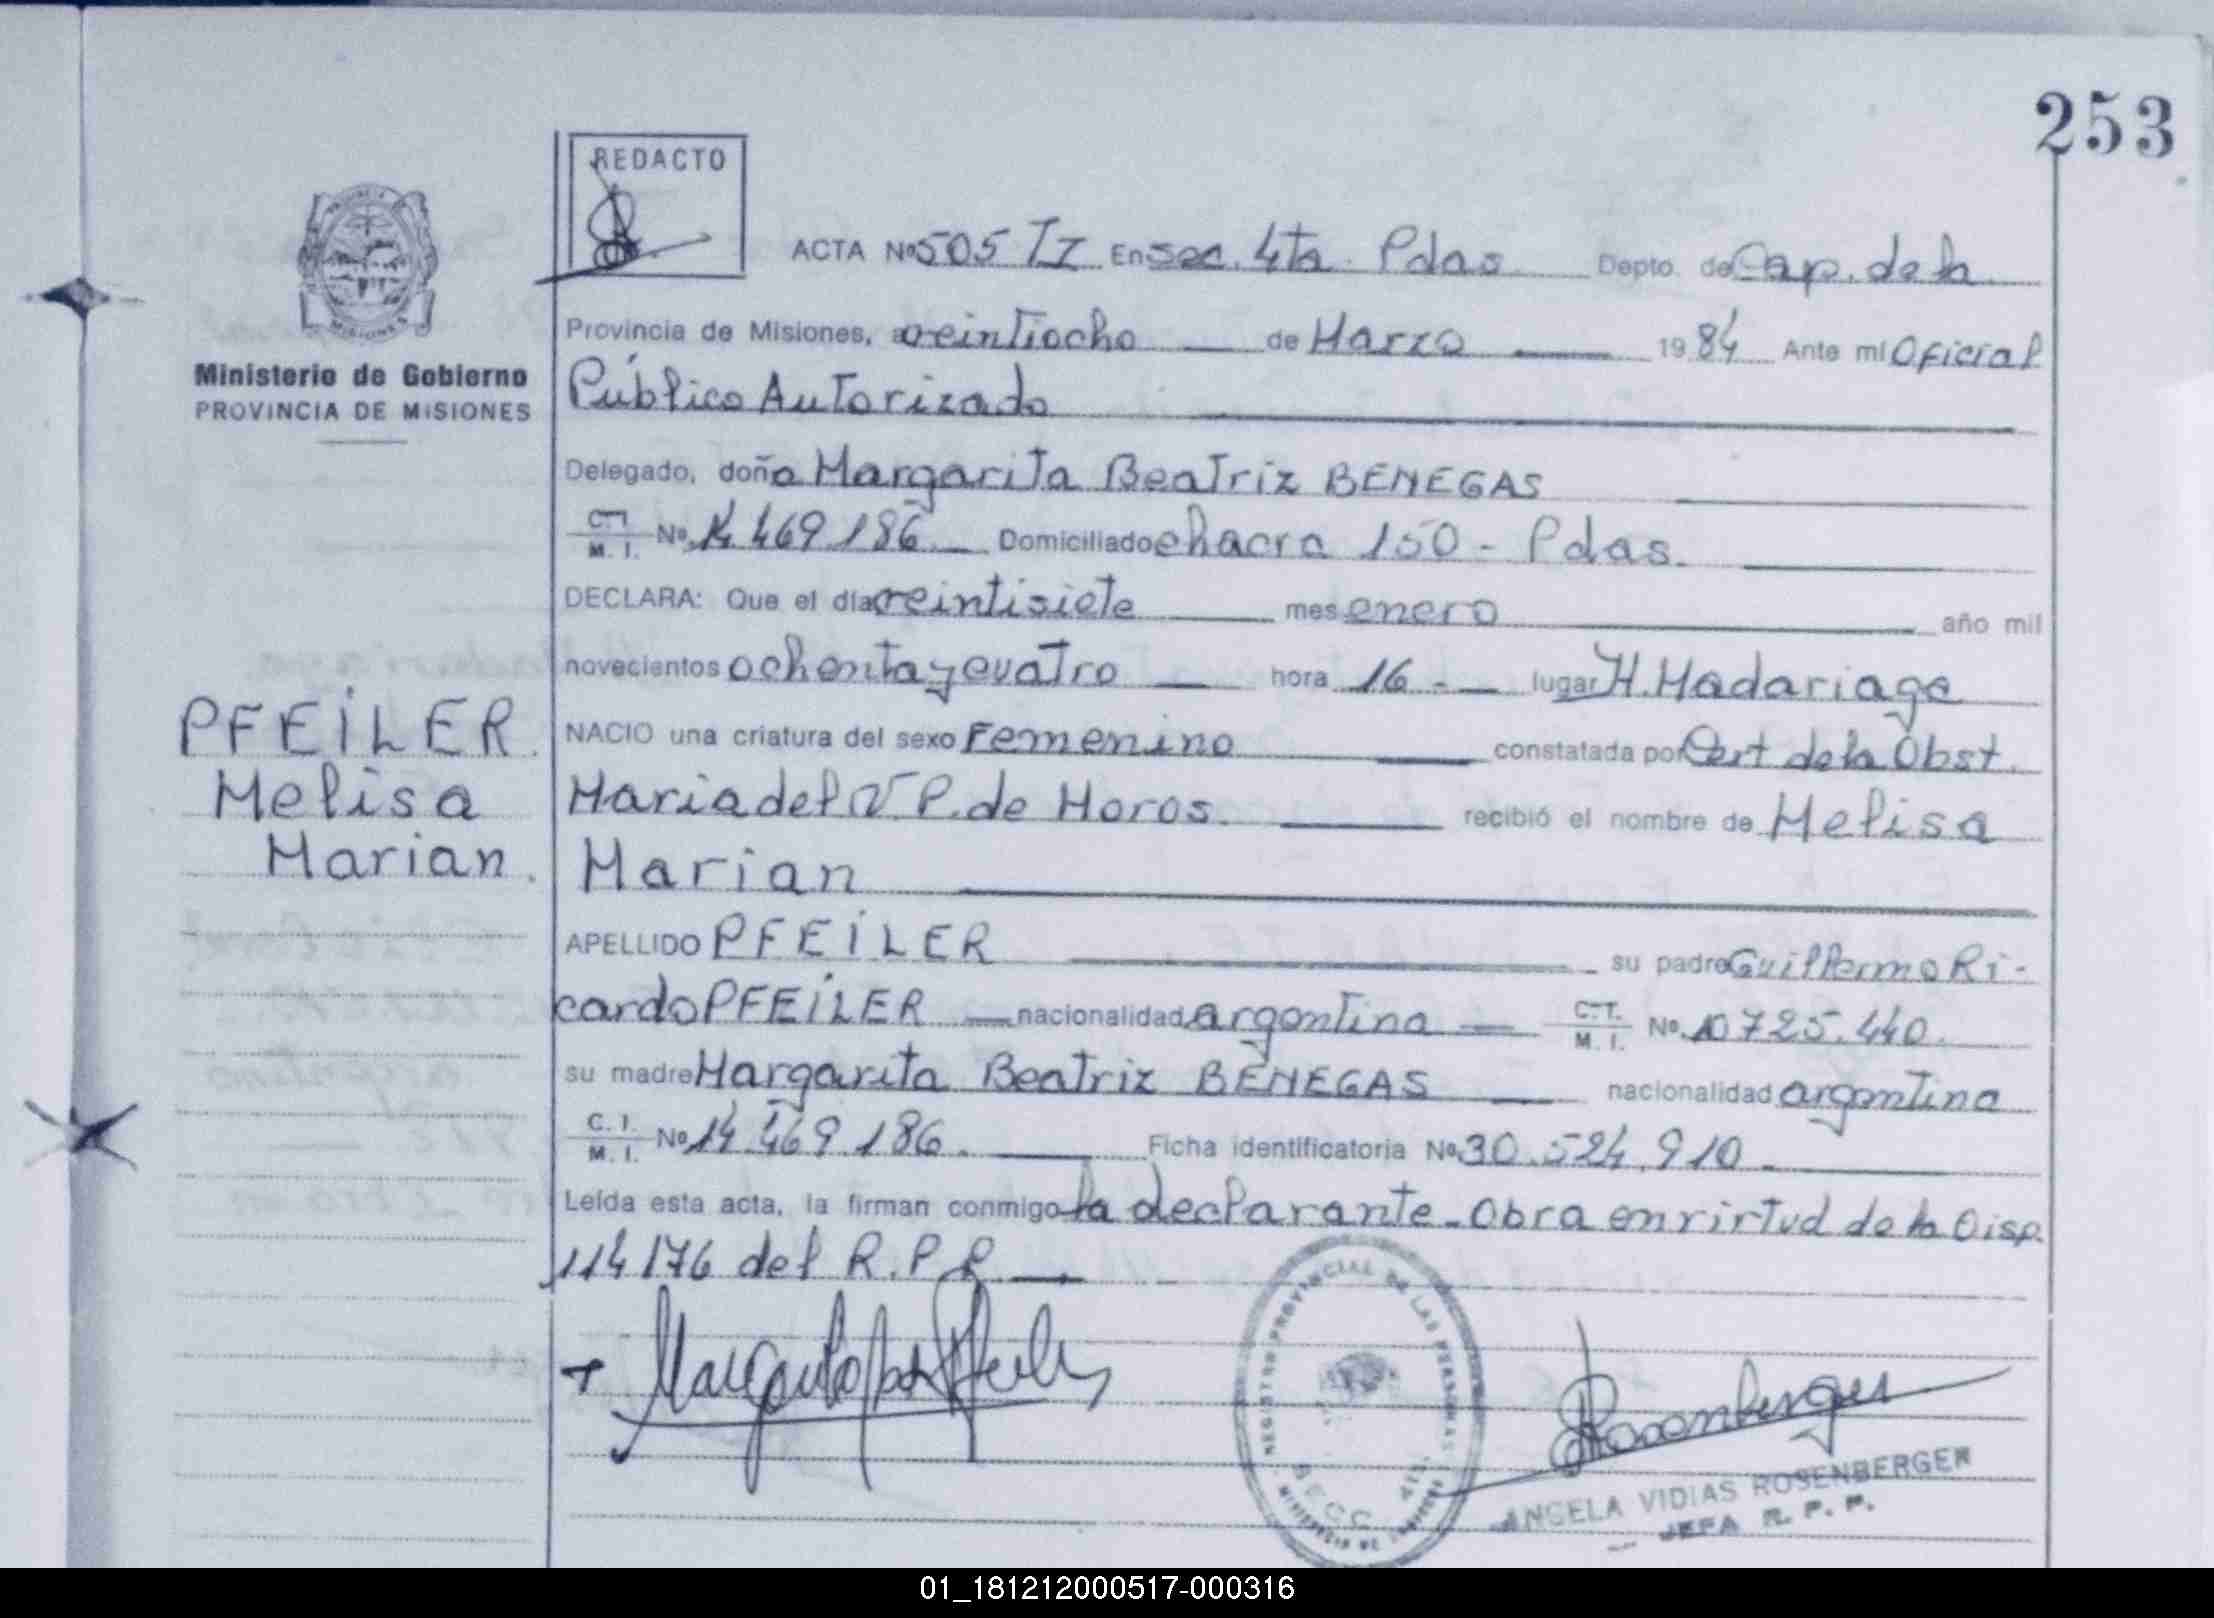 253
REDACTO
ACTA Nº 505 Tz En sec. 4ta. Pdas Depto. de Cap. de la
Provincia de Misiones, a veintiocho de Marzo 1984 Ante mi Oficial
Ministerio de Gobierno
PROVINCIA DE MISIONES
Público Autorizado
Delegado, doña Margarita Beatriz BENEGAS
C.I. M. I. Nº 14.469.186 Domiciliado chacra 150 - Pdas.
DECLARA: Que el día veintisiete mes enero año mil
novecientos ochenta y cuatro hora 16 - lugar H. Madariaga
PFEILER.
Melisa
Marian.
NACIO una criatura del sexo Femenino constatada por Cert de la Obst.
Maria del V. P. de Moros. recibió el nombre de Melisa
Marian
APELLIDO PFEILER su padre Guillermo Ri-
cardo PFEILER nacionalidad argentina C.I. M. I. Nº 10.725.440.
su madre Margarita Beatriz BENEGAS nacionalidad argentina
C. I. M. I. Nº 14.469.186. Ficha identificatoria Nº 30.524.910
Leída esta acta, la firman conmigo la declarante - Obra en virtud de la Disp.
114/76 del R. P. P.
REGISTRO PROVINCIAL DE LAS PERSONAS
Rosenberger
ANGELA VIDIAS ROSENBERGER
JEFA R. P. P.
01_181212000517-000316